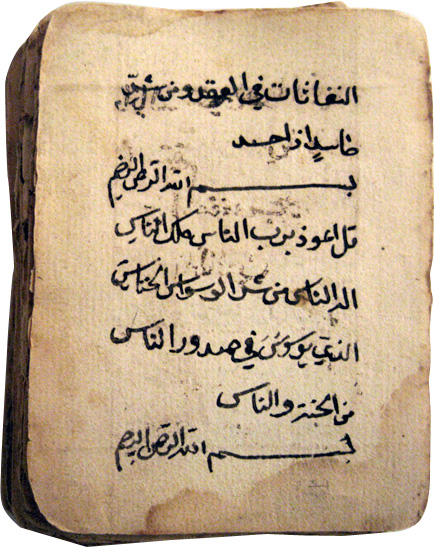 النفاثات في العقد ومن شر
حاسد اذا حسد
بسم الله الرحمن الرحيم
قل اعوذ برب الناس ملك الناس
اله الناس من شر الوسواس الخناس
الذي يوسوس في صدور الناس
من الجنة والناس
بسم الله الرحمن الرحيم